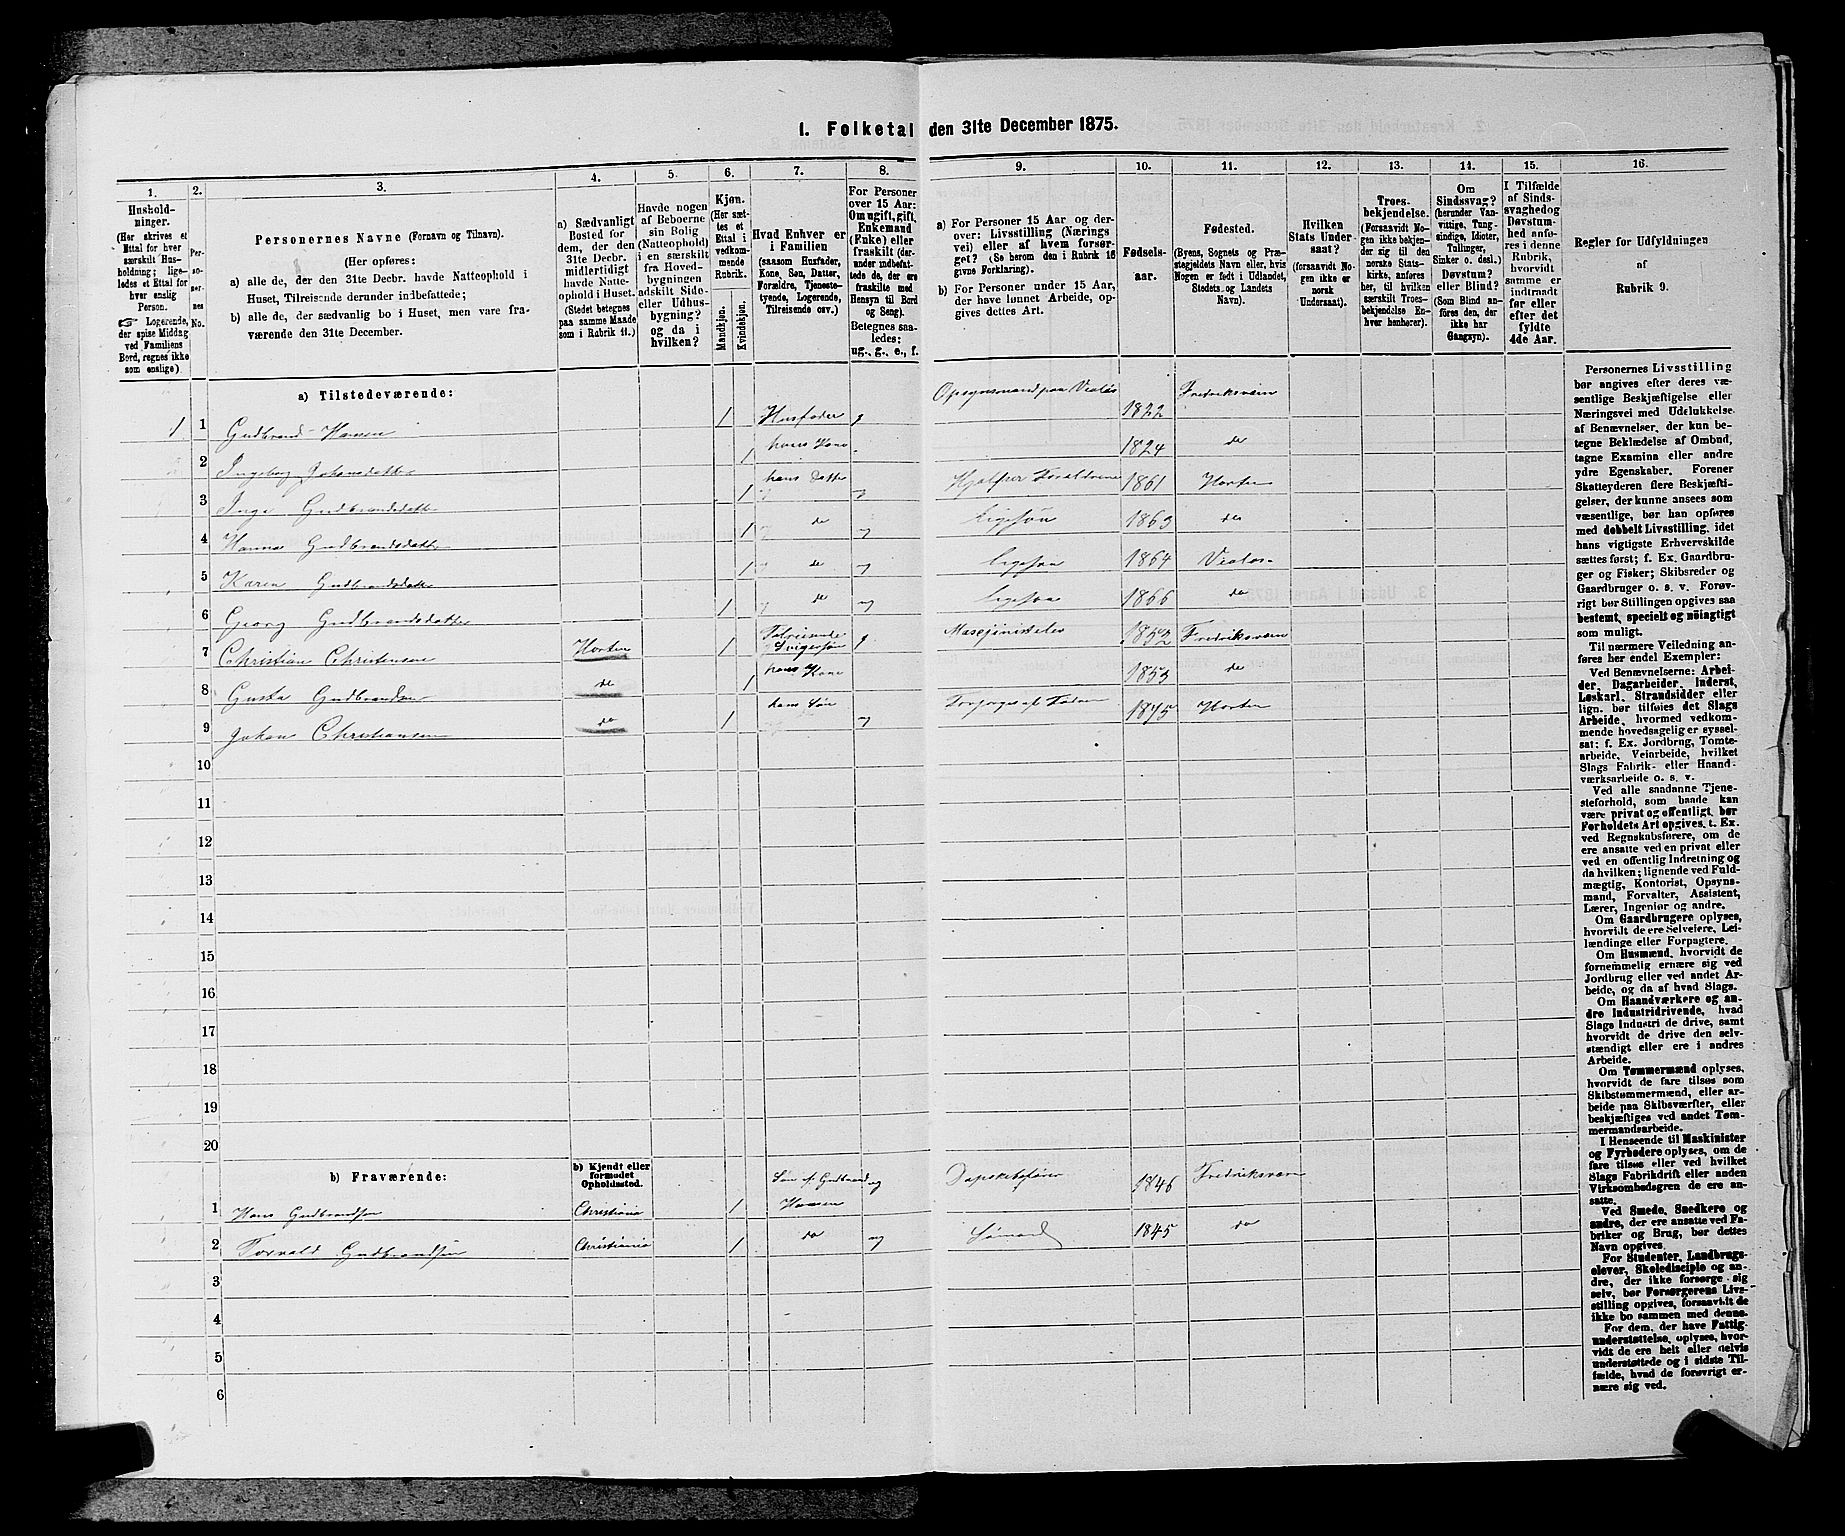 1. Folketal den 31te December 1875.
1. 2. 3. 4. 5. 6. 7. 8. 9. 10. 11. 12. 13. 14. 15. 16.
Hushold-
ninger.
(Her skrives et
Ettal for hver
særskilt Hus-
holdning; lige-
ledes et Ettal for
hver enslig
Person.
☞ Logerende,
der spise Middag
ved Familiens
Bord, regnes ikke
som enslige)
Per-
so-
ner-
nes
No.
Personernes Navne (Fornavn og Tilnavn).
(Her opføres:
a) alle de, der den 31te Decbr. havde Natteophold i
Huset, Tilreisende derunder indbefattede;
b) alle de, der sædvanlig bo i Huset, men vare fra-
værende den 31te December.
a) Sædvanligt
Bosted for
dem, der den
31te Decbr.
midlertidigt
havde Natte-
ophold i Huset.
(Stedet betegnes
paa samme Maade
som i Rubrik 11.)
Havde nogen
af Beboerne
sin Bolig
(Natteophold)
i en særskilt
fra Hoved-
bygningen
adskilt Side-
eller Udhus-
bygning?
og da i
hvilken?
Kjøn.
(Her sæt-
tes et
Ettal i
vedkom-
mende
Rubrik.
Mandkjøn.
Kvindekjøn.
Hvad Enhver er
i Familien
(saasom Husfader,
Kone, Søn, Datter,
Forældre, Tjeneste-
tyende, Logerende,
Tilreisende osv.)
For Personer
over 15 Aar:
Om ugift, gift,
Enkemand
(Enke) eller
fraskilt (der-
under indbefat-
tede de, der ere
fraskilte med
Hensyn til Bord
og Seng).
Betegnes saa-
ledes:
ug., g., e., f.
a) For Personer 15 Aar og der-
over: Livsstilling (Nærings
vei) eller af hvem forsør-
get? (Se herom den i Rubrik 16
givne Forklaring).
b) For Personer under 15 Aar,
der have lønnet Arbeide, op-
gives dettes Art.
Fødsels-
aar.
Fødested.
(Byens, Sognets og Præ-
stegjeldets Navn eller, hvis
Nogen er født i Udlandet,
Stedets og Landets
Navn).
Hvilken
Stats Under-
saat?
(forsaavidt No-
gen ikke er
norsk
Undersaat).
Troes-
bekjendelse.
(Forsaavidt No-
gen ikke bekjen-
der sig til den
norske Stats-
kirke, anføres
her, til hvilken
særskilt Troes-
bekjendelse En-
hver henhører).
Om
Sindssvag?
(herunder Van-
vittige, Tung-
sindige, Idioter,
Tullinger,
Sinker o. desl.)
Døvstum?
eller Blind?
(Som Blind an-
føres den, der
ikke har
Gangsyn).
I Tilfælde
af Sinds-
svaghed og
Døvstum-
hed anfø-
res i denne
Rubrik,
hvorvidt
samme er
indtraadt
før eller
efter det
fyldte
4de Aar.
Regler for Udfyldningen
af
Rubrik 9.
a) Tilstedeværende:
1 1 Gudbrand Hansen 1 Husfader g Opsynsmand paa 1822 Fredriksværn
2 Ingeborg Johansdatter 1 hans Kone 1824 do
3 Inga Gudbrandsdatter 1 hans Datter ug Hjælper Forældrene 1861 Horten
4 Hanna Gudbrandsdatter 1 do ug Ligesaa 1863 do
5 Karen Gudbrandsdatter 1 do ug Ligesaa 1864
6 Georg Gudbrandsdatter 1 do ug Ligesaa 1866 do
7 Christian Christensen Horten 1 Tilreisende Svigersøn g 1852 Fredriksværn
8 Gusta Gudbrandsen do 1 hans Kone 1853 do
9 Johan Christiansen do 1 hans Søn ug Forsørges af Faderen 1875 Horten
10
11
12
13
14
15
16
17
18
19
20
b) Fraværende:
b) Kjendt eller
formodet
Opholdssted.
1 Hans Gudbrandsen Christiania 1 Søn af Gudbrand Hansen ug 1846 Fredriksværn
2 Torvald Gudbrandsen Christiania 1 do ug Sømand 1845 do
3
4
5
6
Personernes Livsstilling
bør angives efter deres væ-
sentlige Beskjæftigelse eller
Næringsvei med Udelukkelse
af Benævnelser, der kun be-
tegne Beklædelse af Ombud,
tagne Examina eller andre
ydre Egenskaber. Forener
Skatteyderen flere Beskjæfti-
gelser, der kunne ansees som
væsentlige, bør han opføres
med dobbelt Livsstilling, idet
hans vigtigste Erhvervskilde
sættes først; f. Ex. Gaardbru-
ger og Fisker; Skibsreder og
Gaardbruger o. s. v. Forøv-
rigt bør Stillingen opgives saa
bestemt, specielt og nöiagtigt
som muligt.
Til nærmere Veiledning an-
føres her endel Exempler:
Ved Benævnelserne: Arbei-
der, Dagarbeider, Inderst,
Løskarl, Strandsidder eller
lign. bør tilføies det Slags
Arbeide, hvormed vedkom-
mende hovedsagelig er syssel-
sat; f. Ex. Jordbrug, Tomte-
arbeide, Veiarbeide, hvilket
Slags Fabrik- eller Haand-
værksarbeide o. s. v.
Ved alle saadanne Tjene-
steforhold, som baade kan
være privat og offentligt, bør
Forholdets Art opgives, t. Ex.
ved Regnskabsførere, om de
ere ansatte ved en privat eller
ved en offentlig Indretning og
da hvilken; lignende ved Fuld-
mægtig, Kontorist, Opsyns-
mand, Forvalter, Assistent,
Lærer, Ingeniør og andre.
Om Gaardbrugere oplyses,
hvorvidt de ere Selveiere, Lei-
lændinge eller Forpagtere.
Om Husmænd, hvorvidt de
fornemmelig ernære sig ved
Jordbrug eller ved andet Ar-
beide, og da af hvad Slags.
Om Haandværkere og an-
dre Industridrivende, hvad
Slags Industri de drive, samt
hvorvidt de drive den selv-
stændigt eller ere i andres
Arbeide.
Om Tømmermænd oplyses,
hvorvidt de fare tilsøs som
Skibstømmermænd, eller ar-
beide paa Skibsværfter, eller
beskjæftiges ved andet Tøm-
mermandsarbeide.
I Henseende til Maskinister
og Fyrbødere oplyses, om de
fare tilsøs eller ved hvilket
Slags Fabrikdrift eller anden
Virksombedsgren de ere an-
satte.
Ved Smede, Snedkere og
andre, der ere ansatte ved Fa-
briker og Brug, bør dettes
Navn opgives.
For Studenter, Landbrugs-
elever, Skoledisciple og an-
dre, der ikke forsørge sig
selv, bør Forsørgerens Livs-
stilling opgives, forsaavidt de
ikke bo sammen med denne.
For dem, der have Fattig-
understøttelse, oplyses, hvor-
vidt de ere helt eller delvis
understøttede og i sidste Til-
fælde, hvad de forøvrigt er-
nære sig ved.